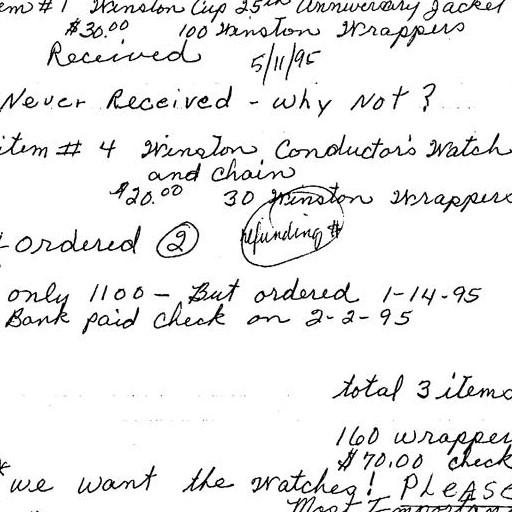 em # 1 Winston Cup 25th Anniversary Jacket
$30.00 100 Winston Wrappers
Received 5/11/95
Never Received - why Not?
item # 4 Winston Conductor's Watch
and chain
$20.00 30 Winston Wrappers
ordered 2 refunding $
only 1100 - But ordered 1-14-95
Bank paid check on 2-2-95
total 3 items
160 wrapper
$70.00 check
* we want the watches! PLEASE
Most Importan